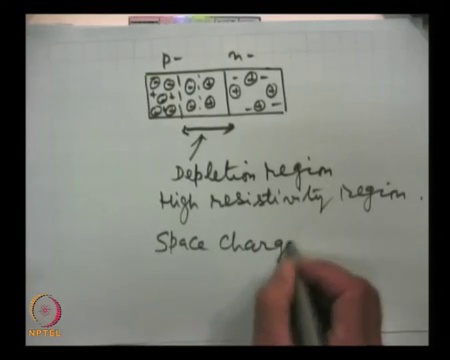 p- n-
Depletion region
High resistivity region.
Space Charg
NPTEL